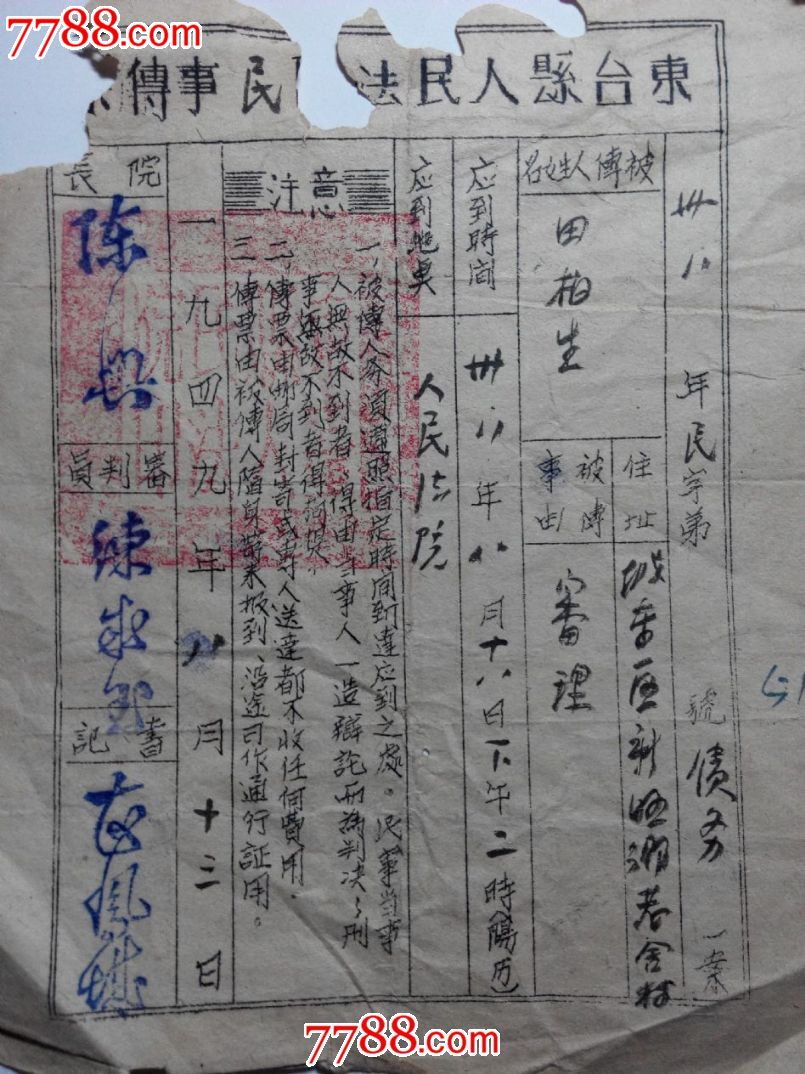 7788.com
7788.com
東台縣人民法 民事傳
卅八年民字第 號債务一案
被傳人姓名
田柏生
住址
区新 舍村
被傳事由
審理
应到時间
卅八年八月十八日下午二時(陽历)
应到地奌
人民法院
注意
一,被傳人务須遵照指定時间到達应到之處。民事当事
人無故不到者,得由当事人一造辯詑而為判决,刑
事無故不到者得拘提。
二,傳票由邮局封寄或專人送達都不收任何費用.
三 傳票由被傳人隨身帶来报到、沿途可作通行証用。
一九四九年八月十三日
院長
陈
審判員
陳
書記
7788.com
7788.com